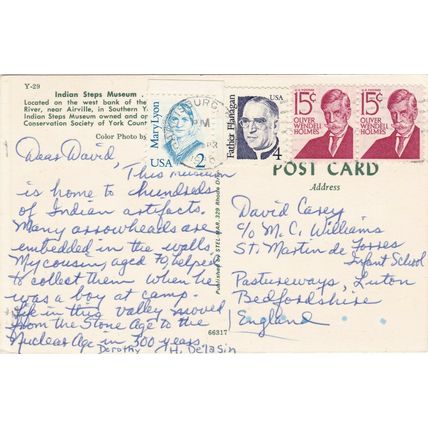 Y-29
Indian Steps Museum .
Located on the west bank of the
River, near Airville, in Southern Y
Indian Steps Museum owned and op
Conservation Society of York Count
Color Photo by
Mary Lyon
USA 2
PM
Father Flanagan
USA
4
15¢
OLIVER
WENDELL
HOLMES
15¢
OLIVER
WENDELL
HOLMES
POST CARD
Address
Dear David,
This museum
is home to hundreds
of Indian artifacts.
Many arrowheads are
embedded in the walls.
My cousin, aged 70 helped
to collect them when he
was a boy at camp.
Life in this valley moved
from the Stone Age to the
Nuclear Age in 300 years.
Dorothy H. DeLasin
Published by STEL-MAR, 329 Rhoda Drive
66317
David Carey
c/o M. C. Williams
St. Martin de Porres
Infant School
Pastureways, Luton
Bedfordshire
England